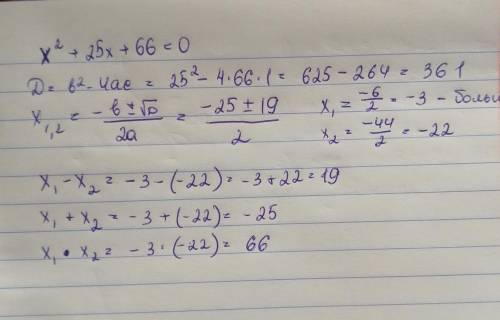 x² + 25x + 66 = 0
D = b² - 4ac = 25² - 4·66·1 = 625 - 264 = 361
x₁,₂ = (-b ± √D)/2a = (-25 ± 19)/2 x₁ = -6/2 = -3 - больш
x₂ = -44/2 = -22
x₁ - x₂ = -3 - (-22) = -3 + 22 = 19
x₁ + x₂ = -3 + (-22) = -25
x₁ · x₂ = -3 · (-22) = 66